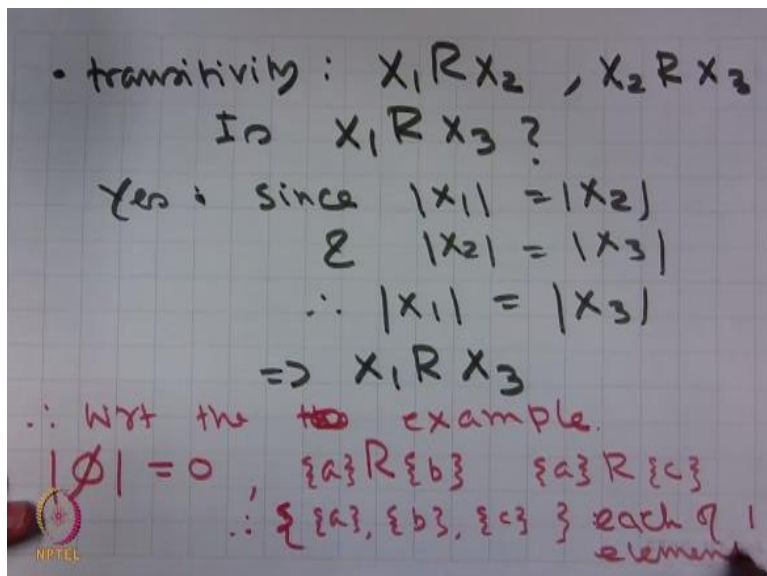 • transitivity : X₁RX₂ , X₂RX₃
Is X₁RX₃ ?
Yes : since |X₁| = |X₂|
& |X₂| = |X₃|
∴ |X₁| = |X₃|
=> X₁RX₃
∴ wrt the example.
|∅| = 0 , {a}R{b} {a}R{c}
∴ { {a}, {b}, {c} } each of 1
element
NPTEL